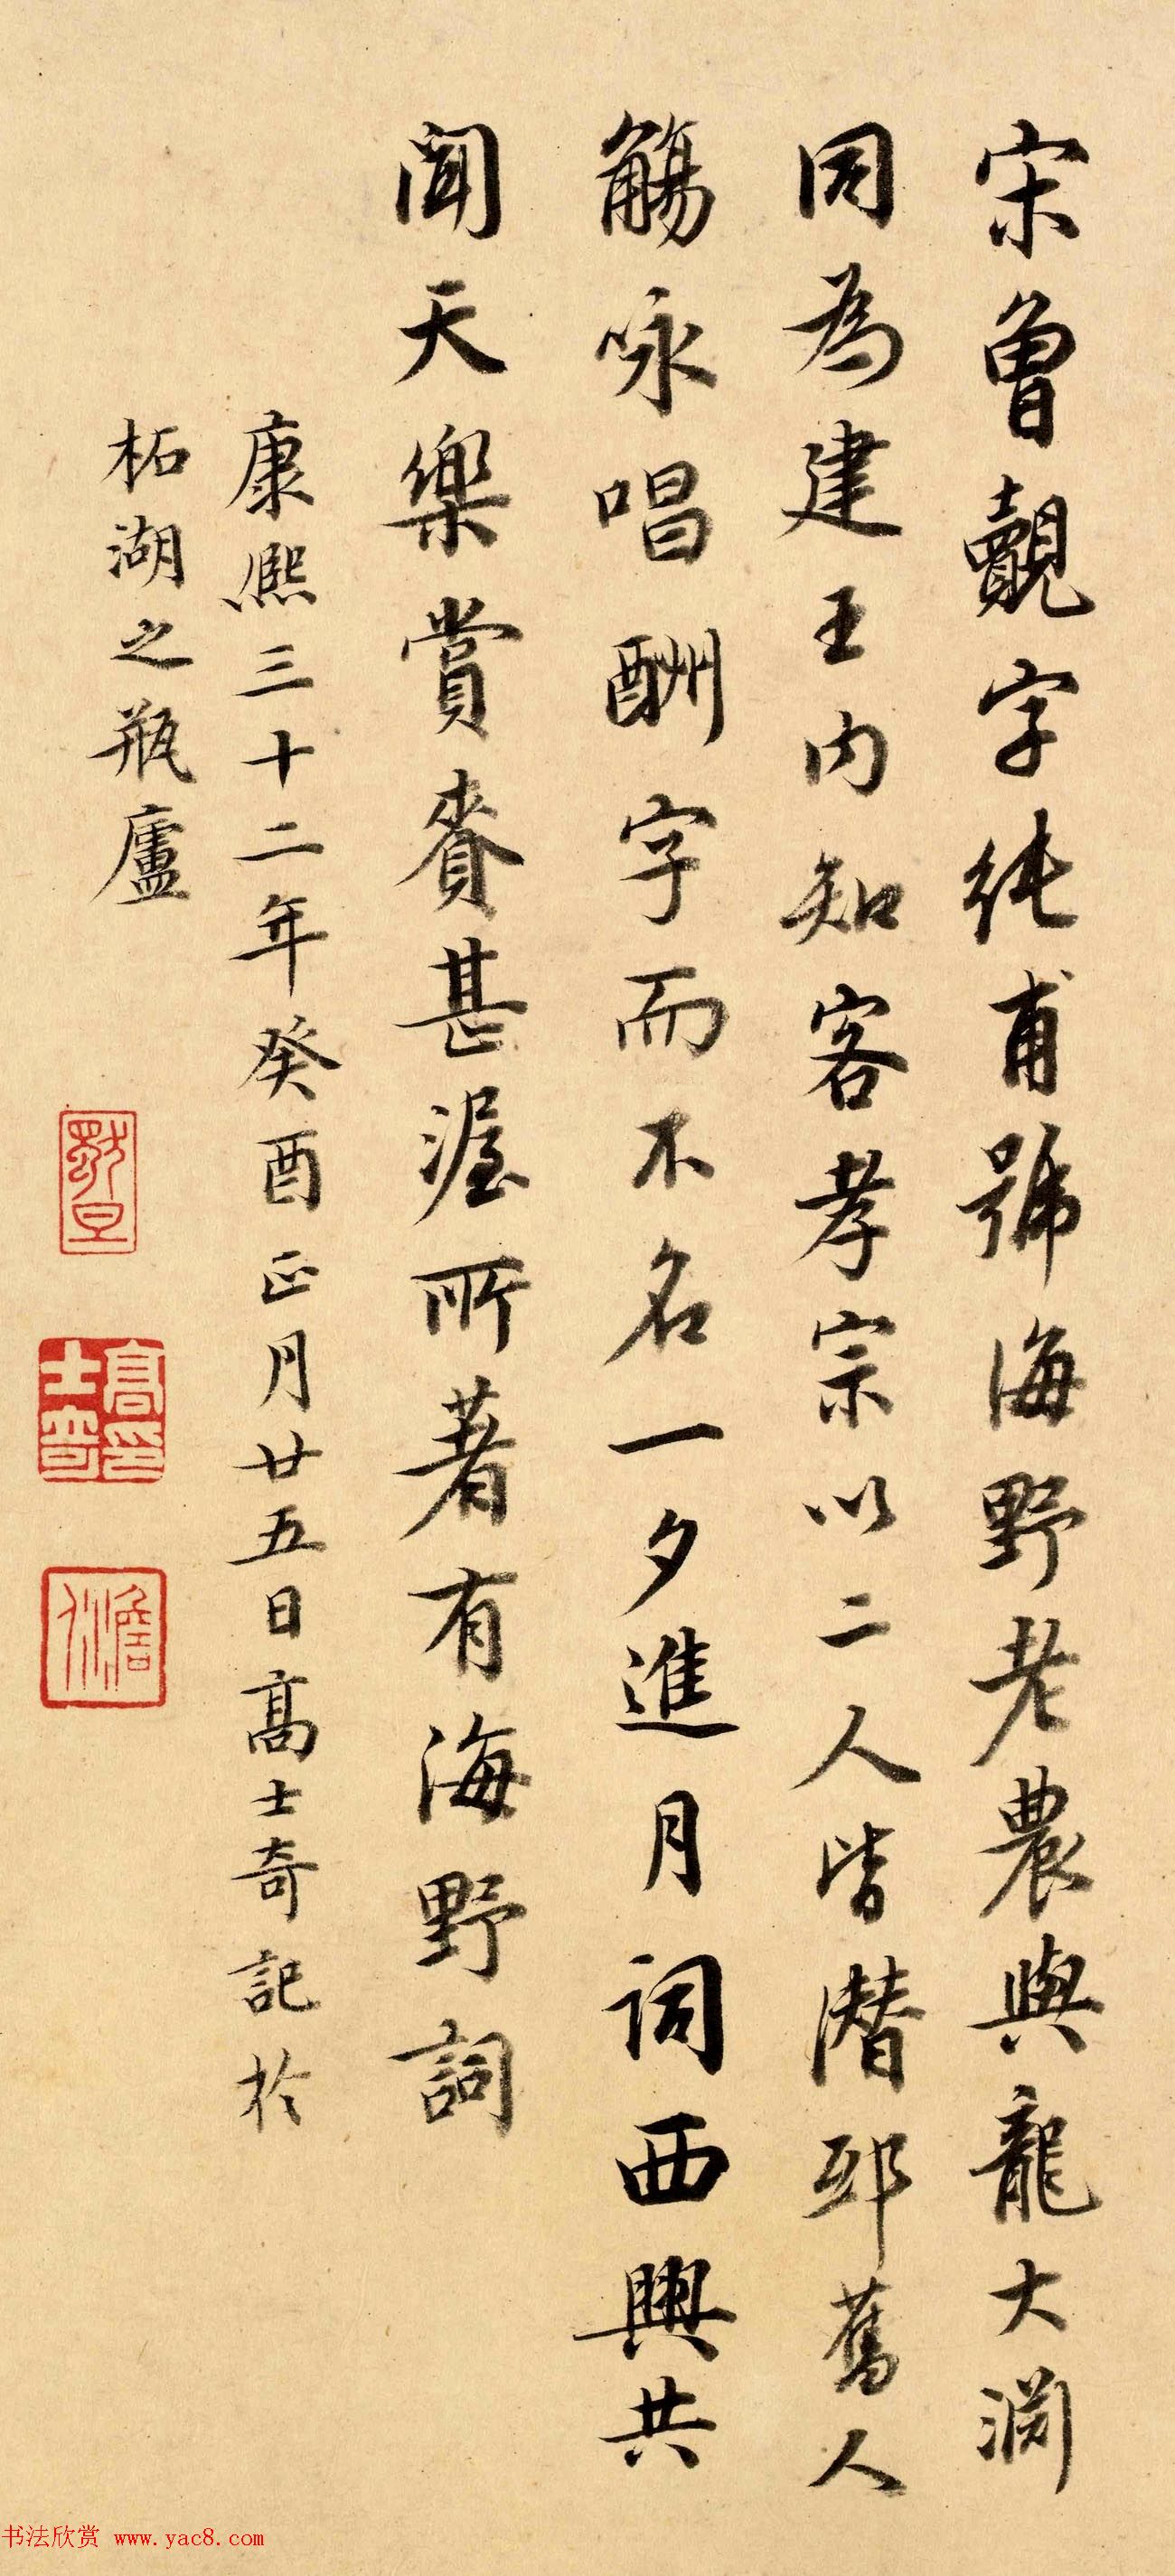 宋曾覿字純甫號海野老農與龍大淵
同為建王內知客孝宗以二人皆潛邸舊人
觴咏唱酬字而不名一夕進月詞西興共
聞天樂賞賚甚渥所著有海野詞
康熙三十二年癸酉正月廿五日高士奇記於
柘湖之瓶廬
高士奇印
書法欣赏 www.yac8.com